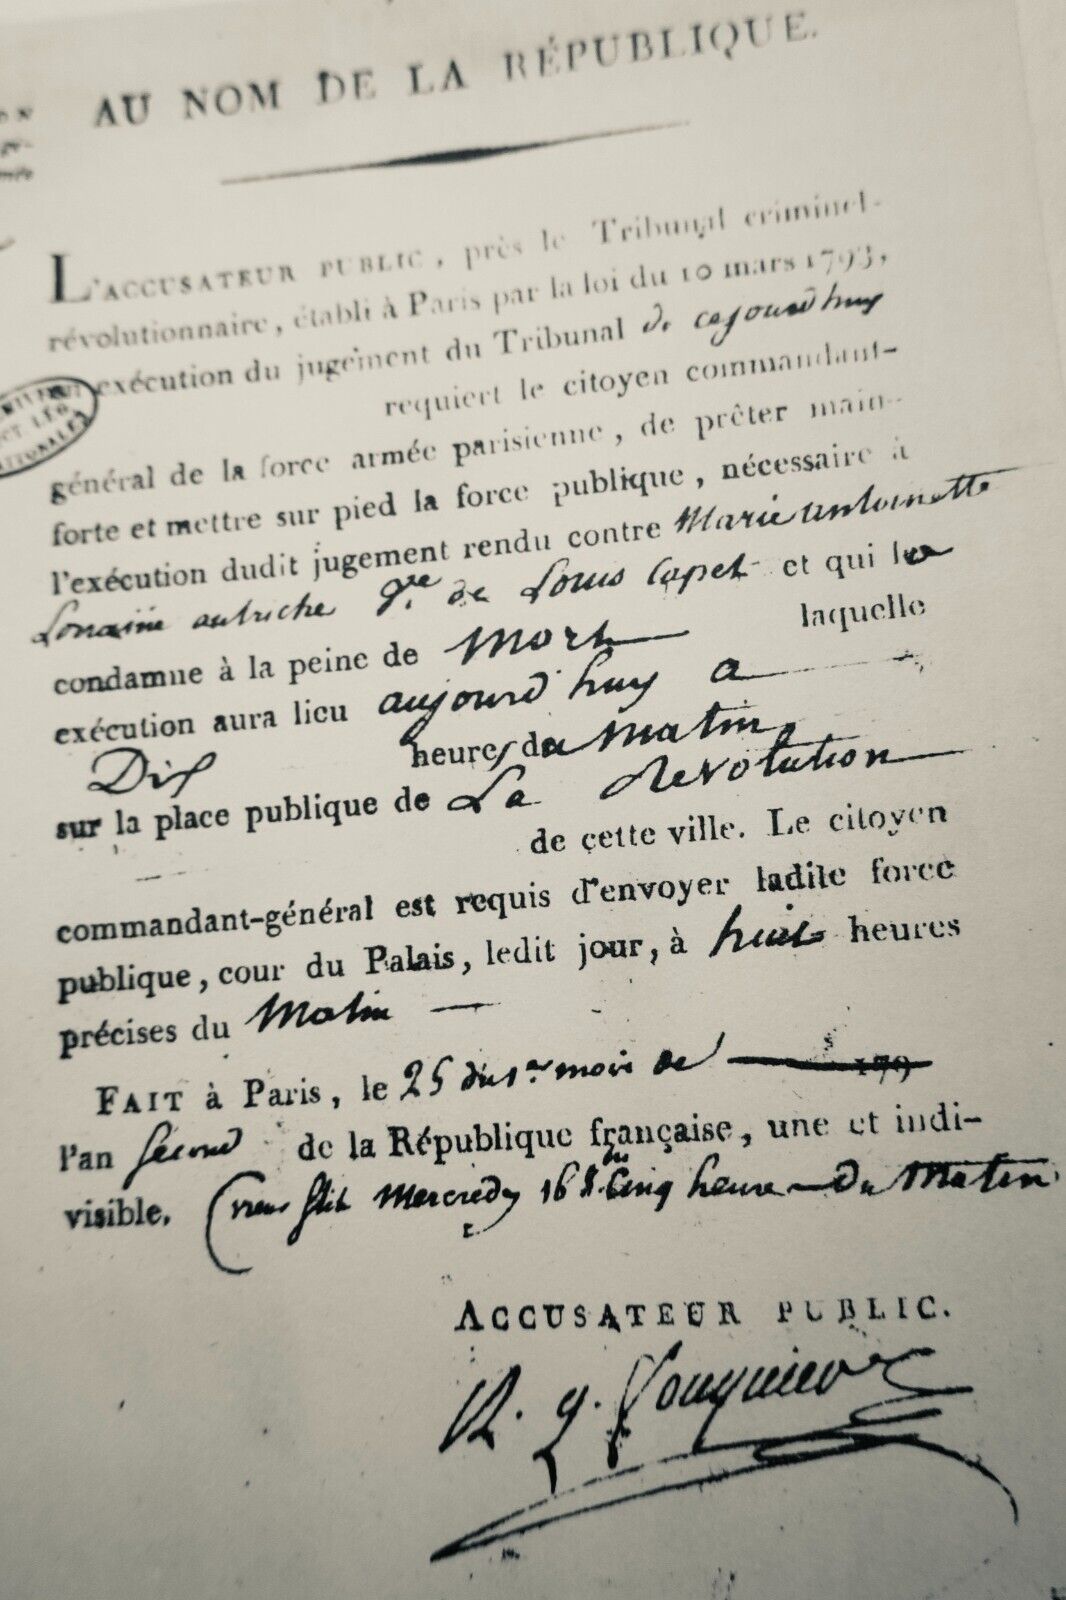 AU NOM DE LA RÉPUBLIQUE.
L'ACCUSATEUR PUBLIC, près le Tribunal criminel-
révolutionnaire, établi à Paris par la loi du 10 mars 1793,
exécution du jugement du Tribunal de cejourd'huy
requiert le citoyen commandant-
général de la force armée parisienne, de prêter main-
forte et mettre sur pied la force publique, nécessaire à
l'exécution dudit jugement rendu contre Marie antoinette
Lorraine autriche Ve de Louis Capet et qui la
condamne à la peine de Mort laquelle
exécution aura lieu aujourd'huy a
Dix heures du Matin
sur la place publique de La Révolution
de cette ville. Le citoyen
commandant-général est requis d'envoyer ladite force
publique, cour du Palais, ledit jour, à huit heures
précises du Matin
FAIT à Paris, le 25 du 1er mois de 179
l'an second de la République française, une et indi-
visible. Mercredy 16 8bre Cinq heure du Matin
ACCUSATEUR PUBLIC.
A. q. Fouquier